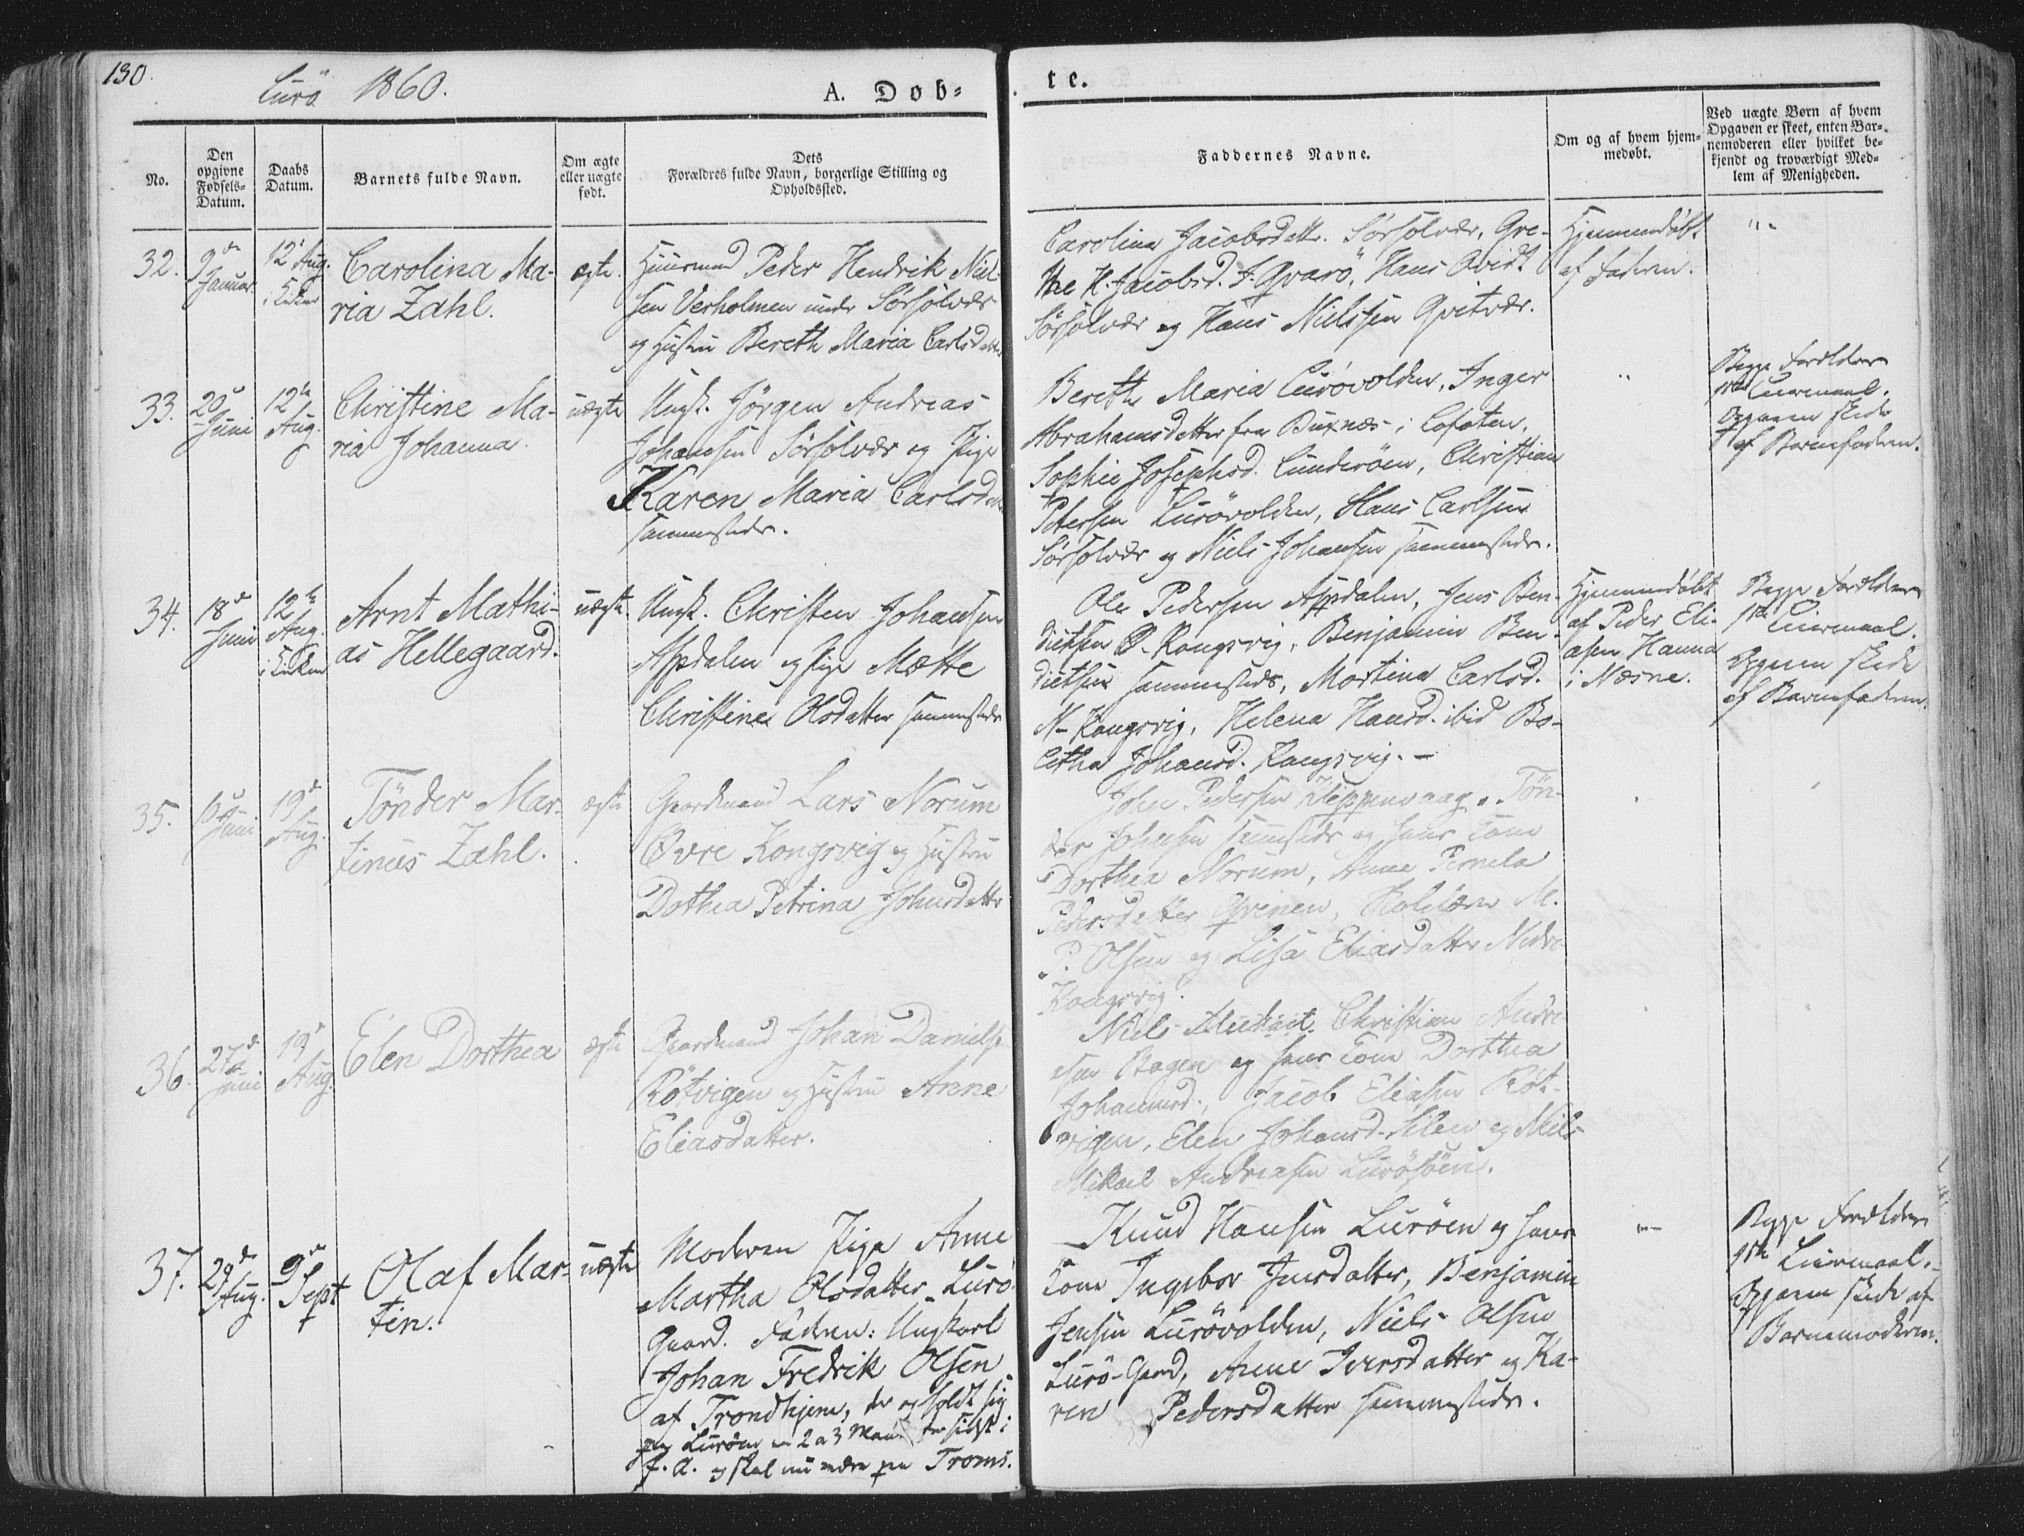 130.
Lurö 1860.
A. Døb-
te.
No.
Den
opgivne
Fødsels-
Datum.
Daabs
Datum.
Barnets fulde Navn.
Om ægte
eller uægte
født.
Dets
Forældres fulde Navn, borgerlige Stilling og
Opholdssted.
Faddernes Navne.
Om og af hvem hjem-
medøbt.
Ved uægte Børn af hvem
Opgaven er skeet, enten Bar-
nemoderen eller hvilket be-
kjendt og troværdigt Med-
lem af Menigheden.
32.
9de
Januar.
12te Aug.
i Kirken
Carolina Ma-
ria Zahl.
ægte.
Huusmand Peder Hendrik Niel-
sen Verholmen under Sørsolvær
og Hustru Bereth Maria Carlsdatter
Carolina Jacobsdatter. Sørsolvær, Gre-
the H. Jacobsd. I. Qvarö, Hans Qvist
Sørsolvær og Hans Nielssen Qvitvær.
Hjemmedøbt
af Faderen.
"
33.
20
Juni
12te
Aug.
Christine Ma-
ria Johanna.
uægte
Ungk. Jörgen Andreas
Johansen Sørsolvær og Pige
Karen Maria Carlsdatter
sammesteds.
Bereth Maria LuröVolden, Inger
Abrahamsdatter fra Buxnæs i Lofoten,
Sophie Josephsd. Lunderöen, Christian
Petersen LuröVolden, Hans Carlsen
Sørsolvær og Niels Johansen sammesteds.
"
Begge Forældres
1ste Leiermaal.
Opgaven skede
af Barnefaderen.
34.
18de
Juni
12te
Aug.
i Kirken
Arnt Mathi-
as Hellegaard.
uægte.
Ungk. Christen Johansen
Aspdalen og Pige Mætte
Christine Olsdatter sammesteds
Ole Pedersen Aspdalen, Jens Ben-
dictsen Ø. Kongsvig, Benjamin Ben-
dictsen sammesteds, Martina Carlsd.
N. Kongsvig, Helena Hansd. ibid Bo-
litha Johansd. Kongsvig.
Hjemmedøbt
af Peder Eli-
asen Hanna
i Næsne.
Begge Forældres
1ste Leiermaal.
Opgaven skede
af Barnefaderen.
35.
Juni
19de
Aug.
Tönder Mar-
tinus Zahl.
ægte
Gaardmand Lars Norum
Øvre Kongsvig og Hustru
Dothea Petrina Johnsdatter
John Pedersen Kleppenvaag, Tön-
der Johnsen sammesteds og hans Kone
Dorthea Norum, Anne Pernela
Pedersdatter Qvinen, M.
P. Olsen og Lisa Eliasdatter Nedre
Kongsvig.
36.
27de
Juni
19de
Aug
Elen Dorthea
ægte
Gaardmand Johan Daniels.
Rötvigen og Hustru Anne
Eliasdatter.
Niels Christian Andre
asen Bogen og hans Kone Dorthea
Johannesd., Jacob Eliasen Röt-
vigen, Elen Johansd. Silen og Niels
Mikael Andreasen Luröföen.
37.
29de
Aug.
9de
Sept
Olaf Mar-
tin.
uægte
Moderen Pige Anne
Martha Olsdatter Lurö-
Gaard. Faderen: Ungkarl
Johan Fredrik Olsen
af Trondhjem, der opholdt sig
paa Luröen en 2 a 3 Maaneder sidst i
f. A. og skal nu være paa Troms.
Knud Hansen Luröen og hans
Kone Ingebor Jensdatter, Benjamin
Jensen Lurövolden, Niels Olsen
Lurö-Gaard, Anne Iversdatter og Ka-
ren Pedersdatter sammesteds.
"
Begge Forældres
1ste Leiermaal.
Opgaven skede af
Barnemoderen.